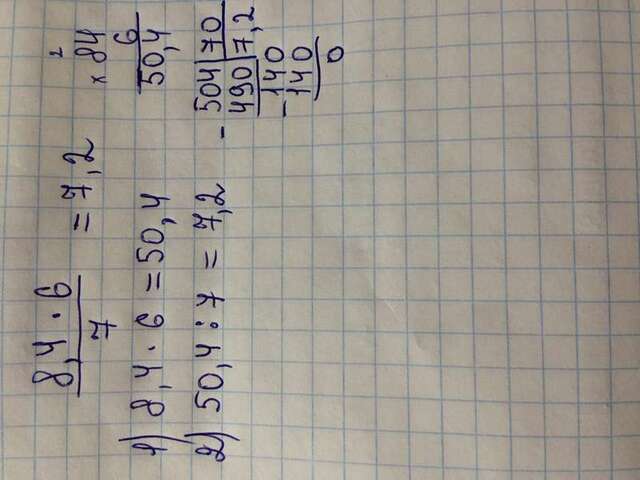 8,4 · 6
7
= 7,2
1) 8,4 · 6 = 50,4
2) 50,4 : 7 = 7,2
2
x 84
6
50,4
- 504 70
490 7,2
- 140
140
0